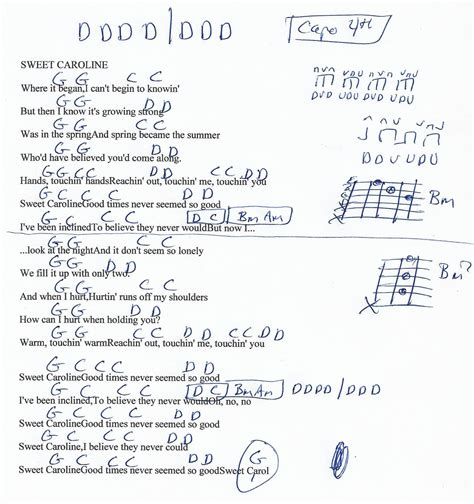 D D D D | D D D
Capo 4th
SWEET CAROLINE
G G C C
Where it began,I can't begin to knowin'
G G D D
But then I know it's growing strong
G G C C
Was in the springAnd spring became the summer
G G D D
Who'd have believed you'd come along.
G G C C D D C C D D
Hands, touchin' handsReachin' out, touchin' me, touchin' you
G C C C D D
Sweet CarolineGood times never seemed so good
G C C C D C Bm Am
I've been inclinedTo believe they never wouldBut now I...
G G C C
...look at the nightAnd it don't seem so lonely
G G D D
We fill it up with only two.
G G C C
And when I hurt,Hurtin' runs off my shoulders
G G D D
How can I hurt when holding you?
G G C C D D C C D D
Warm, touchin' warmReachin' out, touchin' me, touchin' you
G C C C D D
Sweet CarolineGood times never seemed so good
G C C C D C Bm Am D D D D | D D D
I've been inclined,To believe they never wouldOh, no, no
G C C C D D
Sweet CarolineGood times never seemed so good
G C C C D D
Sweet Caroline,I believe they never could
G C C C D D D G
Sweet CarolineGood times never seemed so goodSweet Carol
DUD UDU DUD UDU
D D U UDU
Bm
Bm7